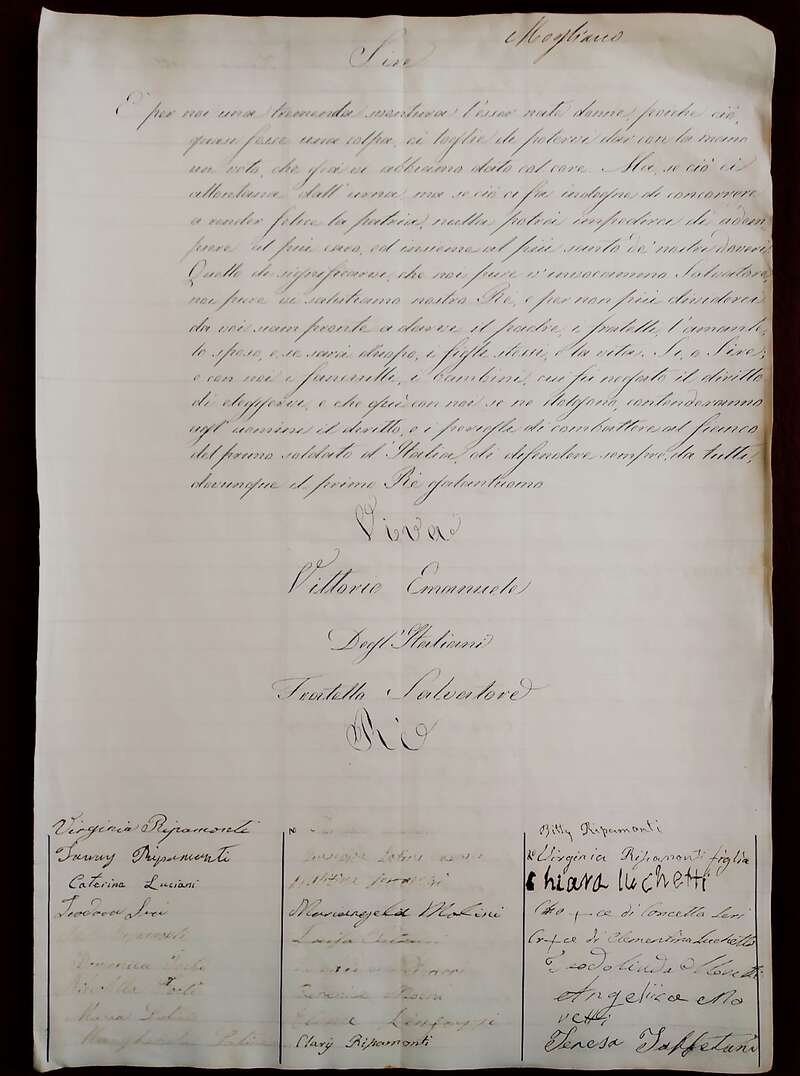 Mogliano
Sire
E' per noi una tremenda sventura l'esser nate donne, poiche ciò,
quasi fosse una colpa, ci toglie di potervi dar con la mano
un voto, che già vi abbiamo dato col core. Ma, se ciò ci
allontana dall'urna, ma se ciò ci fa indegne di concorrere
a render felice la patria, nulla potrà impedirci di adem
piere al più caro, ed insieme al più santo de' nostri doveri
Quello di significarvi, che noi pure v'invocammo Salvatore,
noi pure vi salutiamo nostro Rè, e per non più dividerci
da voi siam pronte a darvi il padre, i fratelli, l'amante,
lo sposo, e se sarà d'uopo, i figli stessi, e la vita. Si, o Sire,
e con noi i fanciulli, i bambini, cui fu negato il diritto
di eleggervi, e che quì con noi se ne dolgono, contenderanno
agl'uomini il diritto, e i perigli di combattere al fianco
del primo soldato d'Italia, di difendere sempre, da tutti,
dovunque il primo Rè galantuomo
Viva
Vittorio Emanuele
Degl'Italiani
Fratello Salvatore
Rè
Virginia Ripamonti
Fanny Ripamonti
Caterina Luciani
Teodora
Maria
Mariangela Molini
Luisa
Clary Ripamonti
Bitty Ripamonti
Virginia Ripamonti figlia
Chiara Luchetti
Cro + ce di Concetta
Cro + ce di Clementina Luchetti
Teodolinda
Angelica Mo
retti
Teresa Taffetani